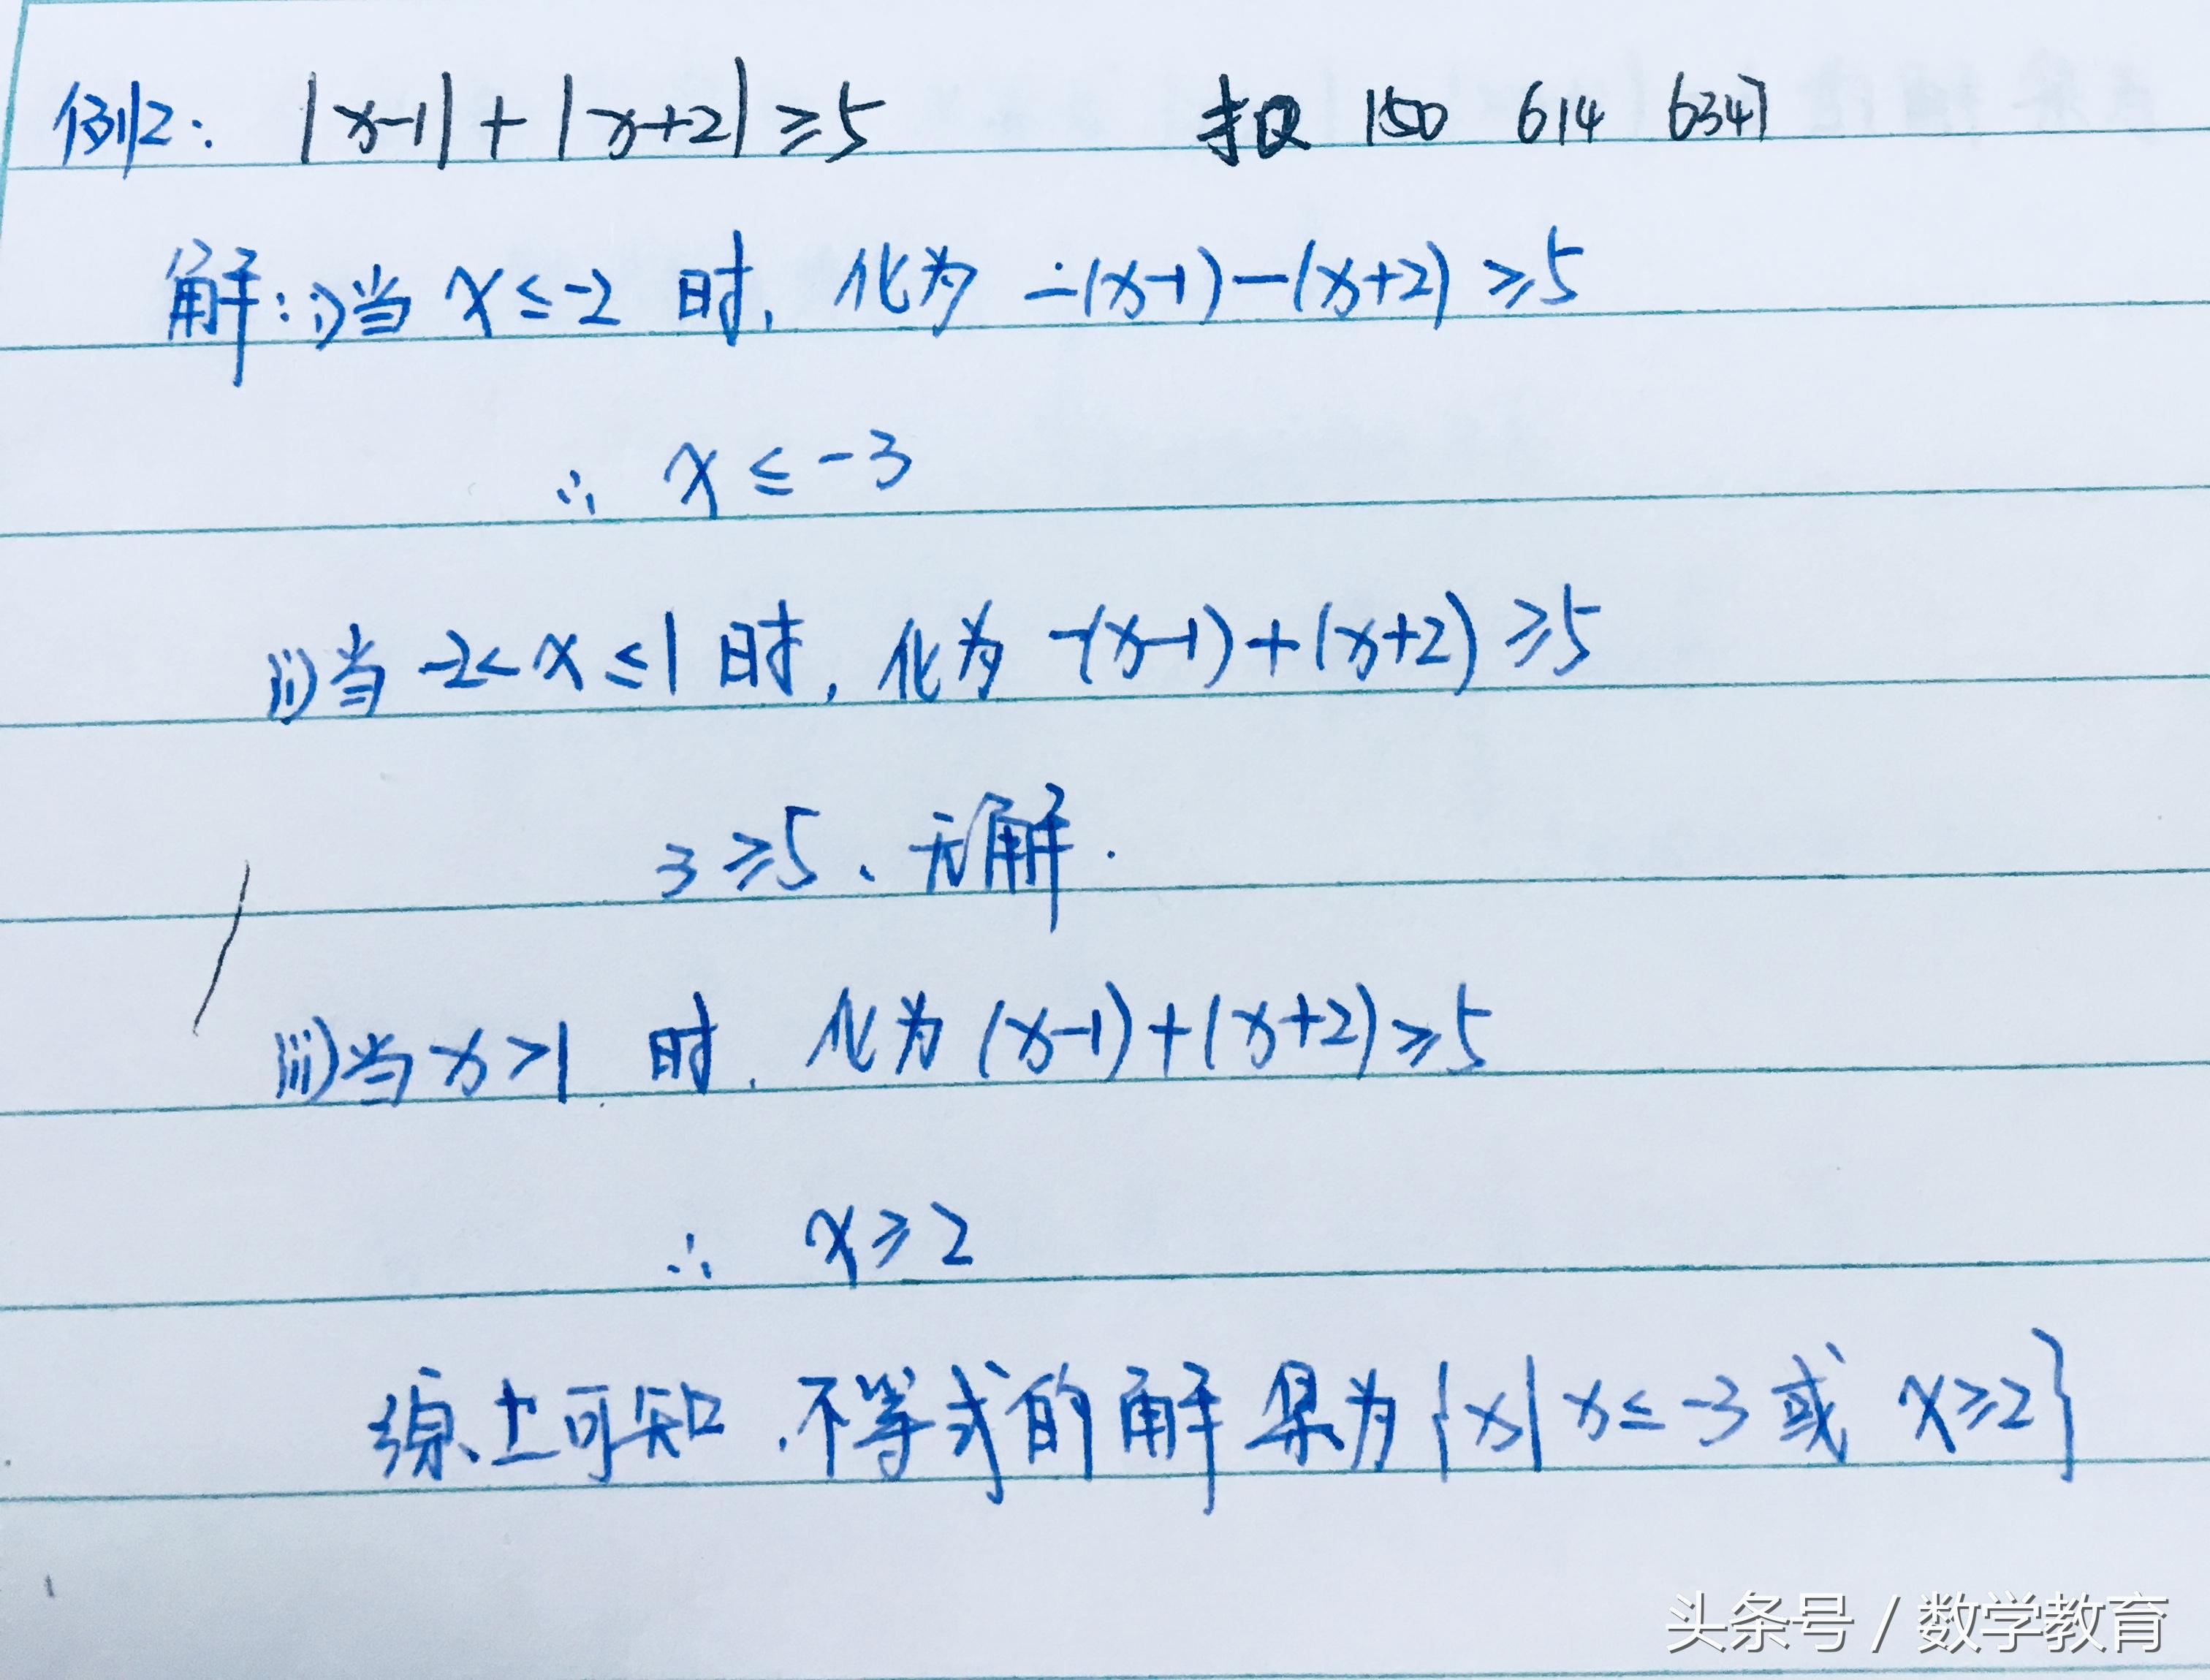 例2: |x-1|+|x+2|≥5 扣Q 150 614 6347
解:i)当 x≤-2 时, 化为 -(x-1)-(x+2)≥5
∴ x≤-3
ii)当 -2<x≤1 时, 化为 -(x-1)+(x+2)≥5
3≥5、无解.
iii)当 x>1 时, 化为 (x-1)+(x+2)≥5
∴ x≥2
综上可知,不等式的解集为{x|x≤-3或 x≥2}
头条号 / 数学教育